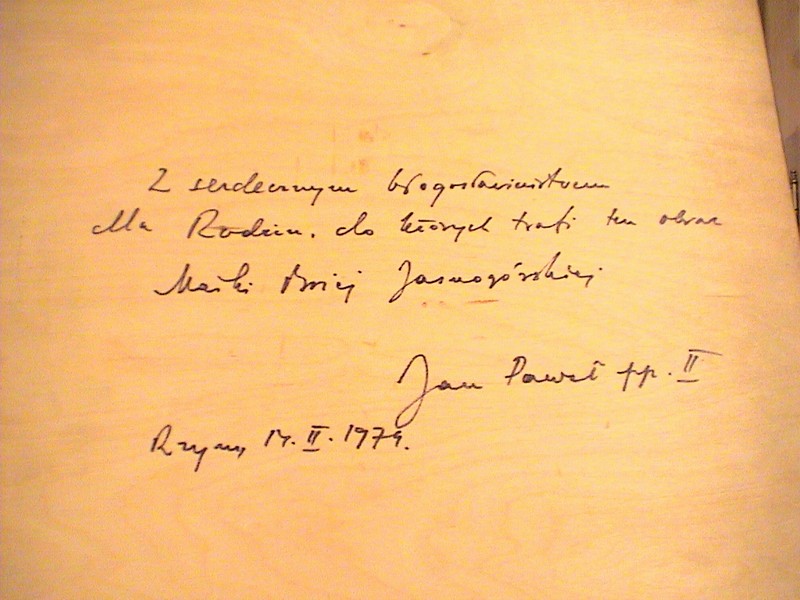 Z serdecznym błogosławieństwem
dla Rodzin, do których trafi ten obraz
Matki Bożej Jasnogórskiej
Jan Paweł pp. II
Rzym, 14. II. 1979.